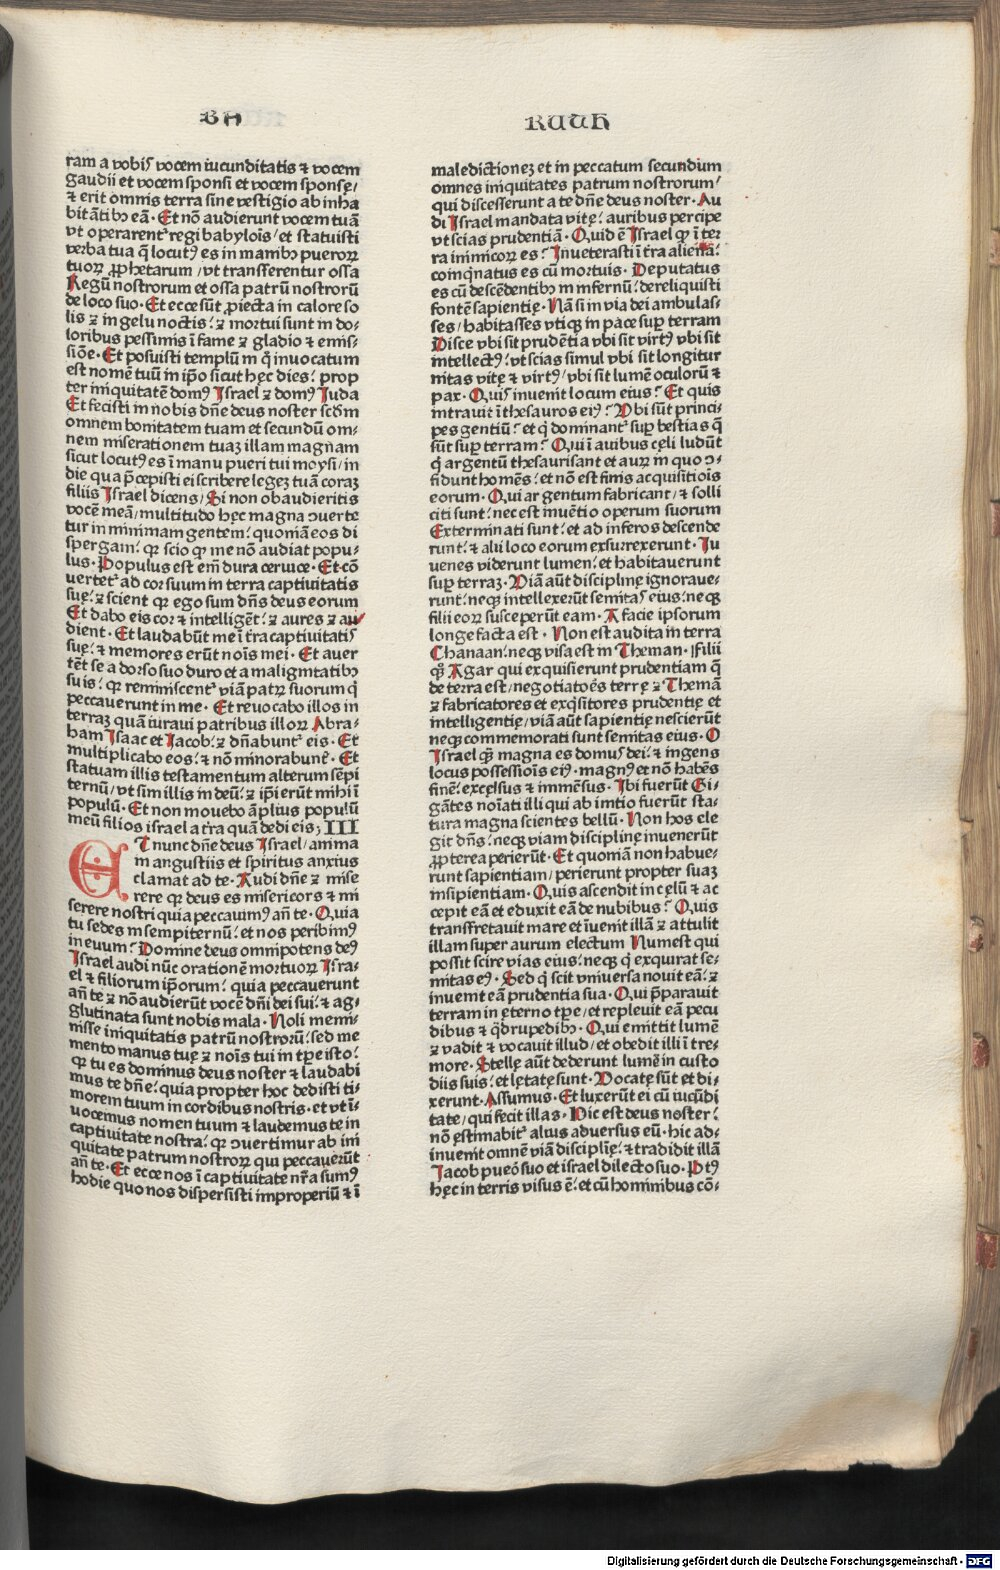 BA RUCH
ram a vobis vocem iucunditatis ⁊ vocem
gaudii et vocem sponsi et vocem sponsę/
⁊ erit omnis terra sine vestigio ab inha
bitātibꝫ eā· Et nō audierunt vocem tuā
vt operarentᷣ regi babylois/ et statuisti
verba tua q̄ locutꝰ es in manibꝫ pueroꝝ
tuoꝝ ꝓphetarum /vt transferrentur ossa
Regū nostrorum et ossa patrū nostrorū
de loco suo· Et ecce sūt ꝓiecta in calore so
lis ⁊ in gelu noctis: ⁊ mortui sunt in do-
loribus pessimis ī fame ⁊ gladio ⁊ emis-
siōe· Et posuisti templū in q̄ inuocatum
est nomē tuū in ip̄o sicut hęc dies: prop
ter iniquitatē domꝰ Israel ⁊ domꝰ Iuda
Et fecisti in nobis dn̄e deus noster scd̄m
omnem bonitatem tuam et secundū om-
nem miserationem tuaꝫ illam magnam
sicut locutꝰ es ī manu pueri tui moysi/ in
die qua p̄cepisti ei scribere legeꝫ tuā coraꝫ
filiis Israel dicens/ Si non obaudieritis
vocē meā/ multitudo hęc magna ↄuerte
tur in minimam gentem: quoniā eos di
spergam: qꝛ scio qꝫ me nō audiat popu-
lus· Populus est em̄ dura ceruice· Et cō
uertetᷣ ad cor suum in terra captiuitatis
suę: ⁊ scient qꝛ ego sum dn̄s deus eorum
Et dabo eis cor ⁊ intelligēt: ⁊ aures ⁊ au
dient· Et laudabūt me ī t̄ra captiuitatis
suę: ⁊ memores erūt nois mei· Et auer
tēt se a dorso suo duro et a malignitatibꝫ
suis: qꝛ reminiscentᷣ viā patꝝ suorum q̄
peccauerunt in me· Et reuocabo illos in
terraꝫ quā iuraui patribus illoꝝ Abra-
ham Isaac et Iacob: ⁊ dn̄abuntᷣ eis· Et
multiplicabo eos: ⁊ nō minorabunt̄· Et
statuam illis testamentum alterum sēpi
ternū/ vt sim illis in deū: ⁊ ip̄i erūt mihi ī
populū· Et non mouebo āplius populū
meū filios israel a t̄ra quā dedi eis; III
ET nunc dn̄e deus Israel/ anima
in angustiis et spiritus anxius
clamat ad te· Audi dn̄e ⁊ mise
rere qꝛ deus es misericors ⁊ mi
serere nostri quia peccauimꝰ an̄ te· Quia
tu sedes in sempiternū: et nos peribimꝰ
in euum: Domine deus omnipotens deꝰ
Israel audi nūc orationē mortuoꝝ Isra-
el ⁊ filiorum ip̄orum: quia peccauerunt
an̄ te ⁊ nō audierūt vocē dn̄i dei sui: ⁊ ag-
glutinata sunt nobis mala· Noli memi-
nisse iniquitatis patrū nostrorū: sed me
mento manus tuę ⁊ nois tui in tp̄e isto:
qꝛ tu es dominus deus noster ⁊ laudabi
mus te dn̄e: quia propter hoc dedisti ti-
morem tuum in cordibus nostris· et vt ī-
uocemus nomen tuum ⁊ laudemus te in
captiuitate nostra: qꝛ ↄuertimur ab ini
quitate patrum nostroꝝ qui peccauerūt
an̄ te· Et ecce nos ī captiuitate nr̄a sumꝰ
hodie quo nos dispersisti improperiū ⁊ ī
maledictioneꝫ et in peccatum secundum
omnes iniquitates patrum nostrorum/
qui discesserunt a te dn̄e deus noster· Au
di Israel mandata vitę: auribus percipe
vt scias prudentiā· Quid ē Israel qꝫ ī ter
ra inimicoꝝ es: Inueterasti ī t̄ra aliena:
coinq̇natus es cū mortuis· Deputatus
es cū descēdentibꝫ in infernū: dereliquisti
fontē sapientię· Nā si in via dei ambulas-
ses/ habitasses vtiqꝫ in pace suꝑ terram
Disce vbi sit prudētia vbi sit virtꝰ vbi sit
intellectꝰ: vt scias simul vbi sit longitur
nitas vitę ⁊ virtꝰ/ vbi sit lumē oculorū ⁊
pax· Quis inuenit locum eius: Et quis
intrauit ī thesauros eiꝰ: Vbi sūt princi-
pes gentiū: et q̄ dominantᷣ suꝑ bestias q̄
sūt suꝑ terram: Qui ī auibus cęli ludūt
q̄ argentū thesaurisant et auꝝ in quo ↄ-
fidunt homēs: et nō est finis acquisitiois
eorum· Qui argentum fabricant/ ⁊ solli
citi sunt: nec est inuētio operum suorum
Exterminati sunt: et ad inferos descende
runt: ⁊ alii loco eorum exsurrexerunt· Iu
uenes viderunt lumen: et habitauerunt
suꝑ terraꝫ· Viā aūt disciplinę ignoraue-
runt: neqꝫ intellexerūt semitas eius: neqꝫ
filii eoꝝ susceperūt eam· A facie ipsorum
longe facta est· Non est audita in terra
Chanaan: neqꝫ visa est in Theman· Filii
qꝫ Agar qui exquisierunt prudentiam q̄
de terra est/ negotiatoēs terrę ⁊ Themā
⁊ fabricatores et exq̇sitores prudentię et
intelligentię/ viā aūt sapientię nescierūt
neqꝫ commemorati sunt semitas eius· O
Israel qꝫ magna es domus dei: ⁊ ingens
locus possessiois eiꝰ· magnꝰ et nō habēs
finē: excelsus ⁊ immēsus· Ibi fuerūt Gi-
gātes noiati illi qui ab initio fuerūt sta-
tura magna scientes bellū· Non hos ele
git dn̄s: neqꝫ viam disciplinę inuenerūt
ꝓpterea perierūt· Et quoniā non habue-
runt sapientiam/ perierunt propter suaꝫ
insipientiam· Quis ascendit in cęlū ⁊ ac
cepit eā et eduxit eā de nubibus: Quis
transfretauit mare et īuenit illā ⁊ attulit
illam super aurum electum Num est qui
possit scire vias eius: neqꝫ q̄ exquirat se-
mitas eiꝰ· Sed q̄ scit vniuersa nouit eā: ⁊
inuenit eā prudentia sua· Qui p̄parauit
terram in ęterno tp̄e/ et repleuit eā pecu
dibus ⁊ q̄drupedibꝫ· Qui emittit lumē
⁊ vadit ⁊ vocauit illud/ et obedit illi ī tre-
more· Stellę aūt dederunt lumē in custo
diis suis: et lętatę sunt· Vocatę sūt et di-
xerunt· Assumus· Et luxerūt ei cū iucūdi
tate/ qui fecit illas· Hic est deus noster:
nō ęstimabitᷣ altus aduersus eū· hic ad-
inuenit omnē viā disciplię: ⁊ tradidit illā
Iacob pueō suo et israel dilecto suo· Ptꝰ
hęc in terris visus ē: et cū hominibus cō-
Digitalisierung gefördert durch die Deutsche Forschungsgemeinschaft - DFG